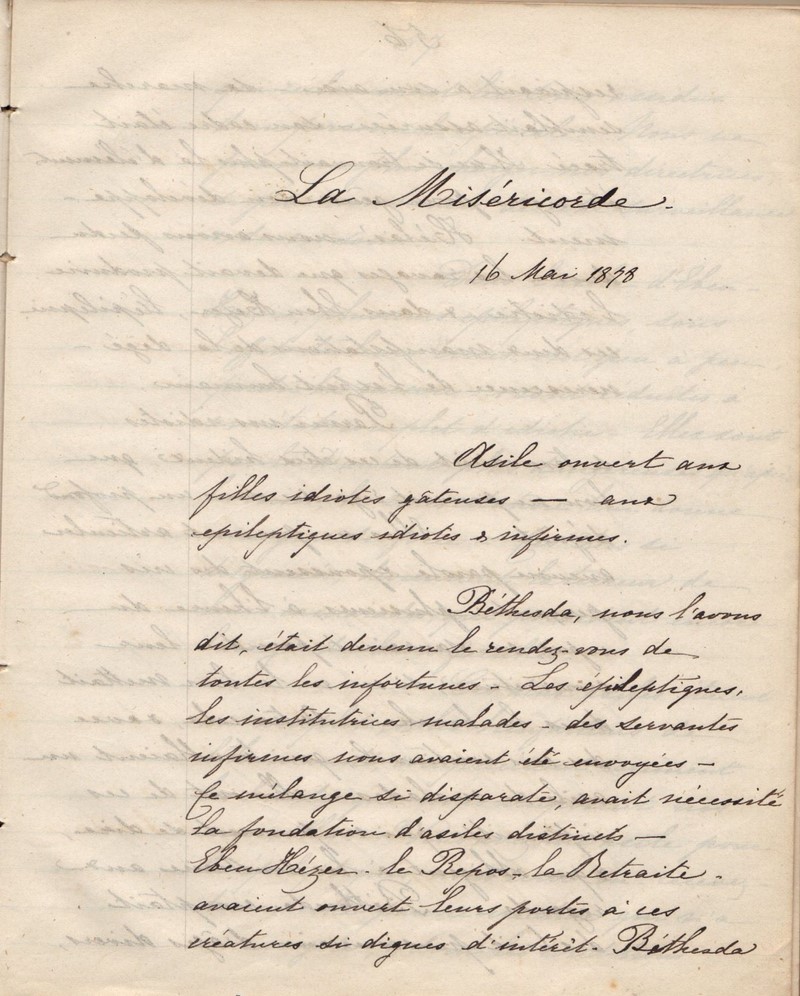 La Miséricorde.
16 Mai 1878
Asile ouvert aux
filles idiotes gâteuses — aux
epileptiques idiotes & infirmes.
Béthesda, nous l'avons
dit, était devenu le rendez-vous de
toutes les infortunes - Les épileptiques,
les institutrices malades - des servantes
infirmes nous avaient été envoyées -
Ce mélange si disparate, avait nécessité
la fondation d'asiles distincts —
Eben-Hézer - le Repos, la Retraite -
avaient ouvert leurs portes à ces
créatures si dignes d'intérêt. Béthesda